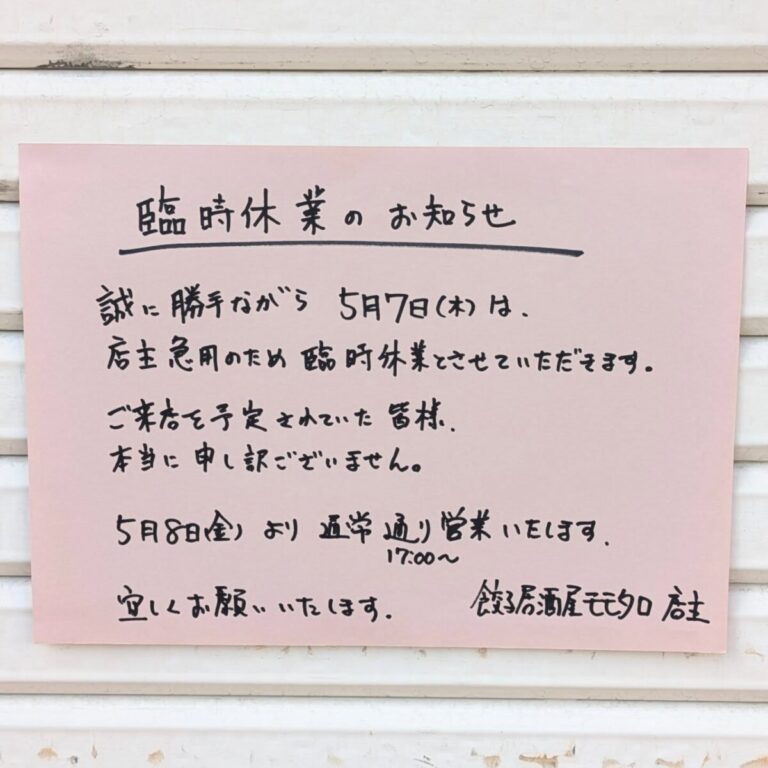 臨時休業のお知らせ
誠に勝手ながら 5月7日(木)は、
店主急用のため臨時休業とさせていただきます。
ご来店を予定されていた皆様、
本当に申し訳ございません。
5月8日(金)より通常通り営業いたします。
17:00〜
宜しくお願いいたします。
餃子居酒屋モモタロ 店主